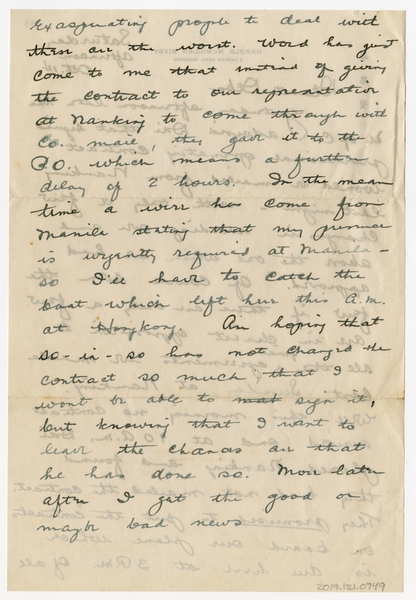 exasperating people to deal with
these are the worst. Word has just
come to me that instead of giving
the contract to our representative
at Nanking to come through with
Co. mail, they gave it to the
P.O. which means a further
delay of 2 hours. In the mean
time a wire has come from
Manila stating that my presence
is urgently required at Manila -
so I'll have to catch the
boat which left here this A.M.
at Hongkong. Am hoping that
so-in-so has not changed the
contract so much that I
wont be able to sign it,
but knowing that I want to
leave the chances are that
he has done so. More later
after I get the good or
maybe bad news
2019.121.0749